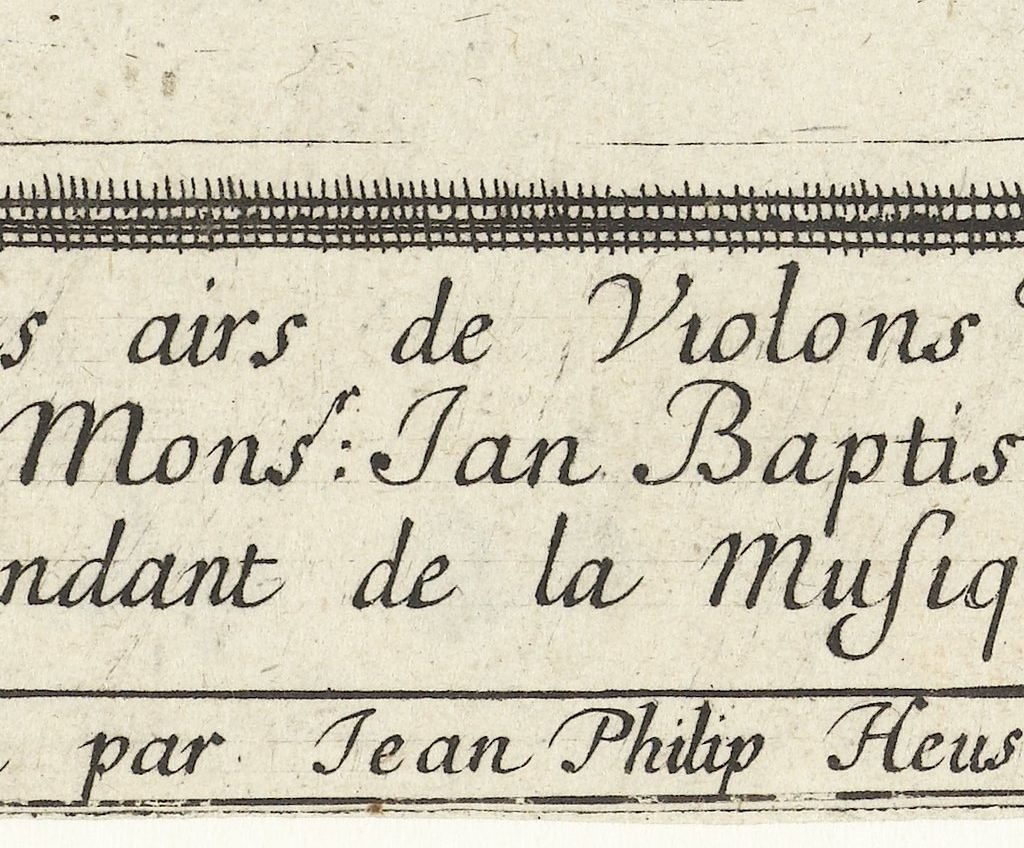 s airs de Violons
Monsr: Jan Baptis
ndant de la Muſiq
par Jean Philip Heus